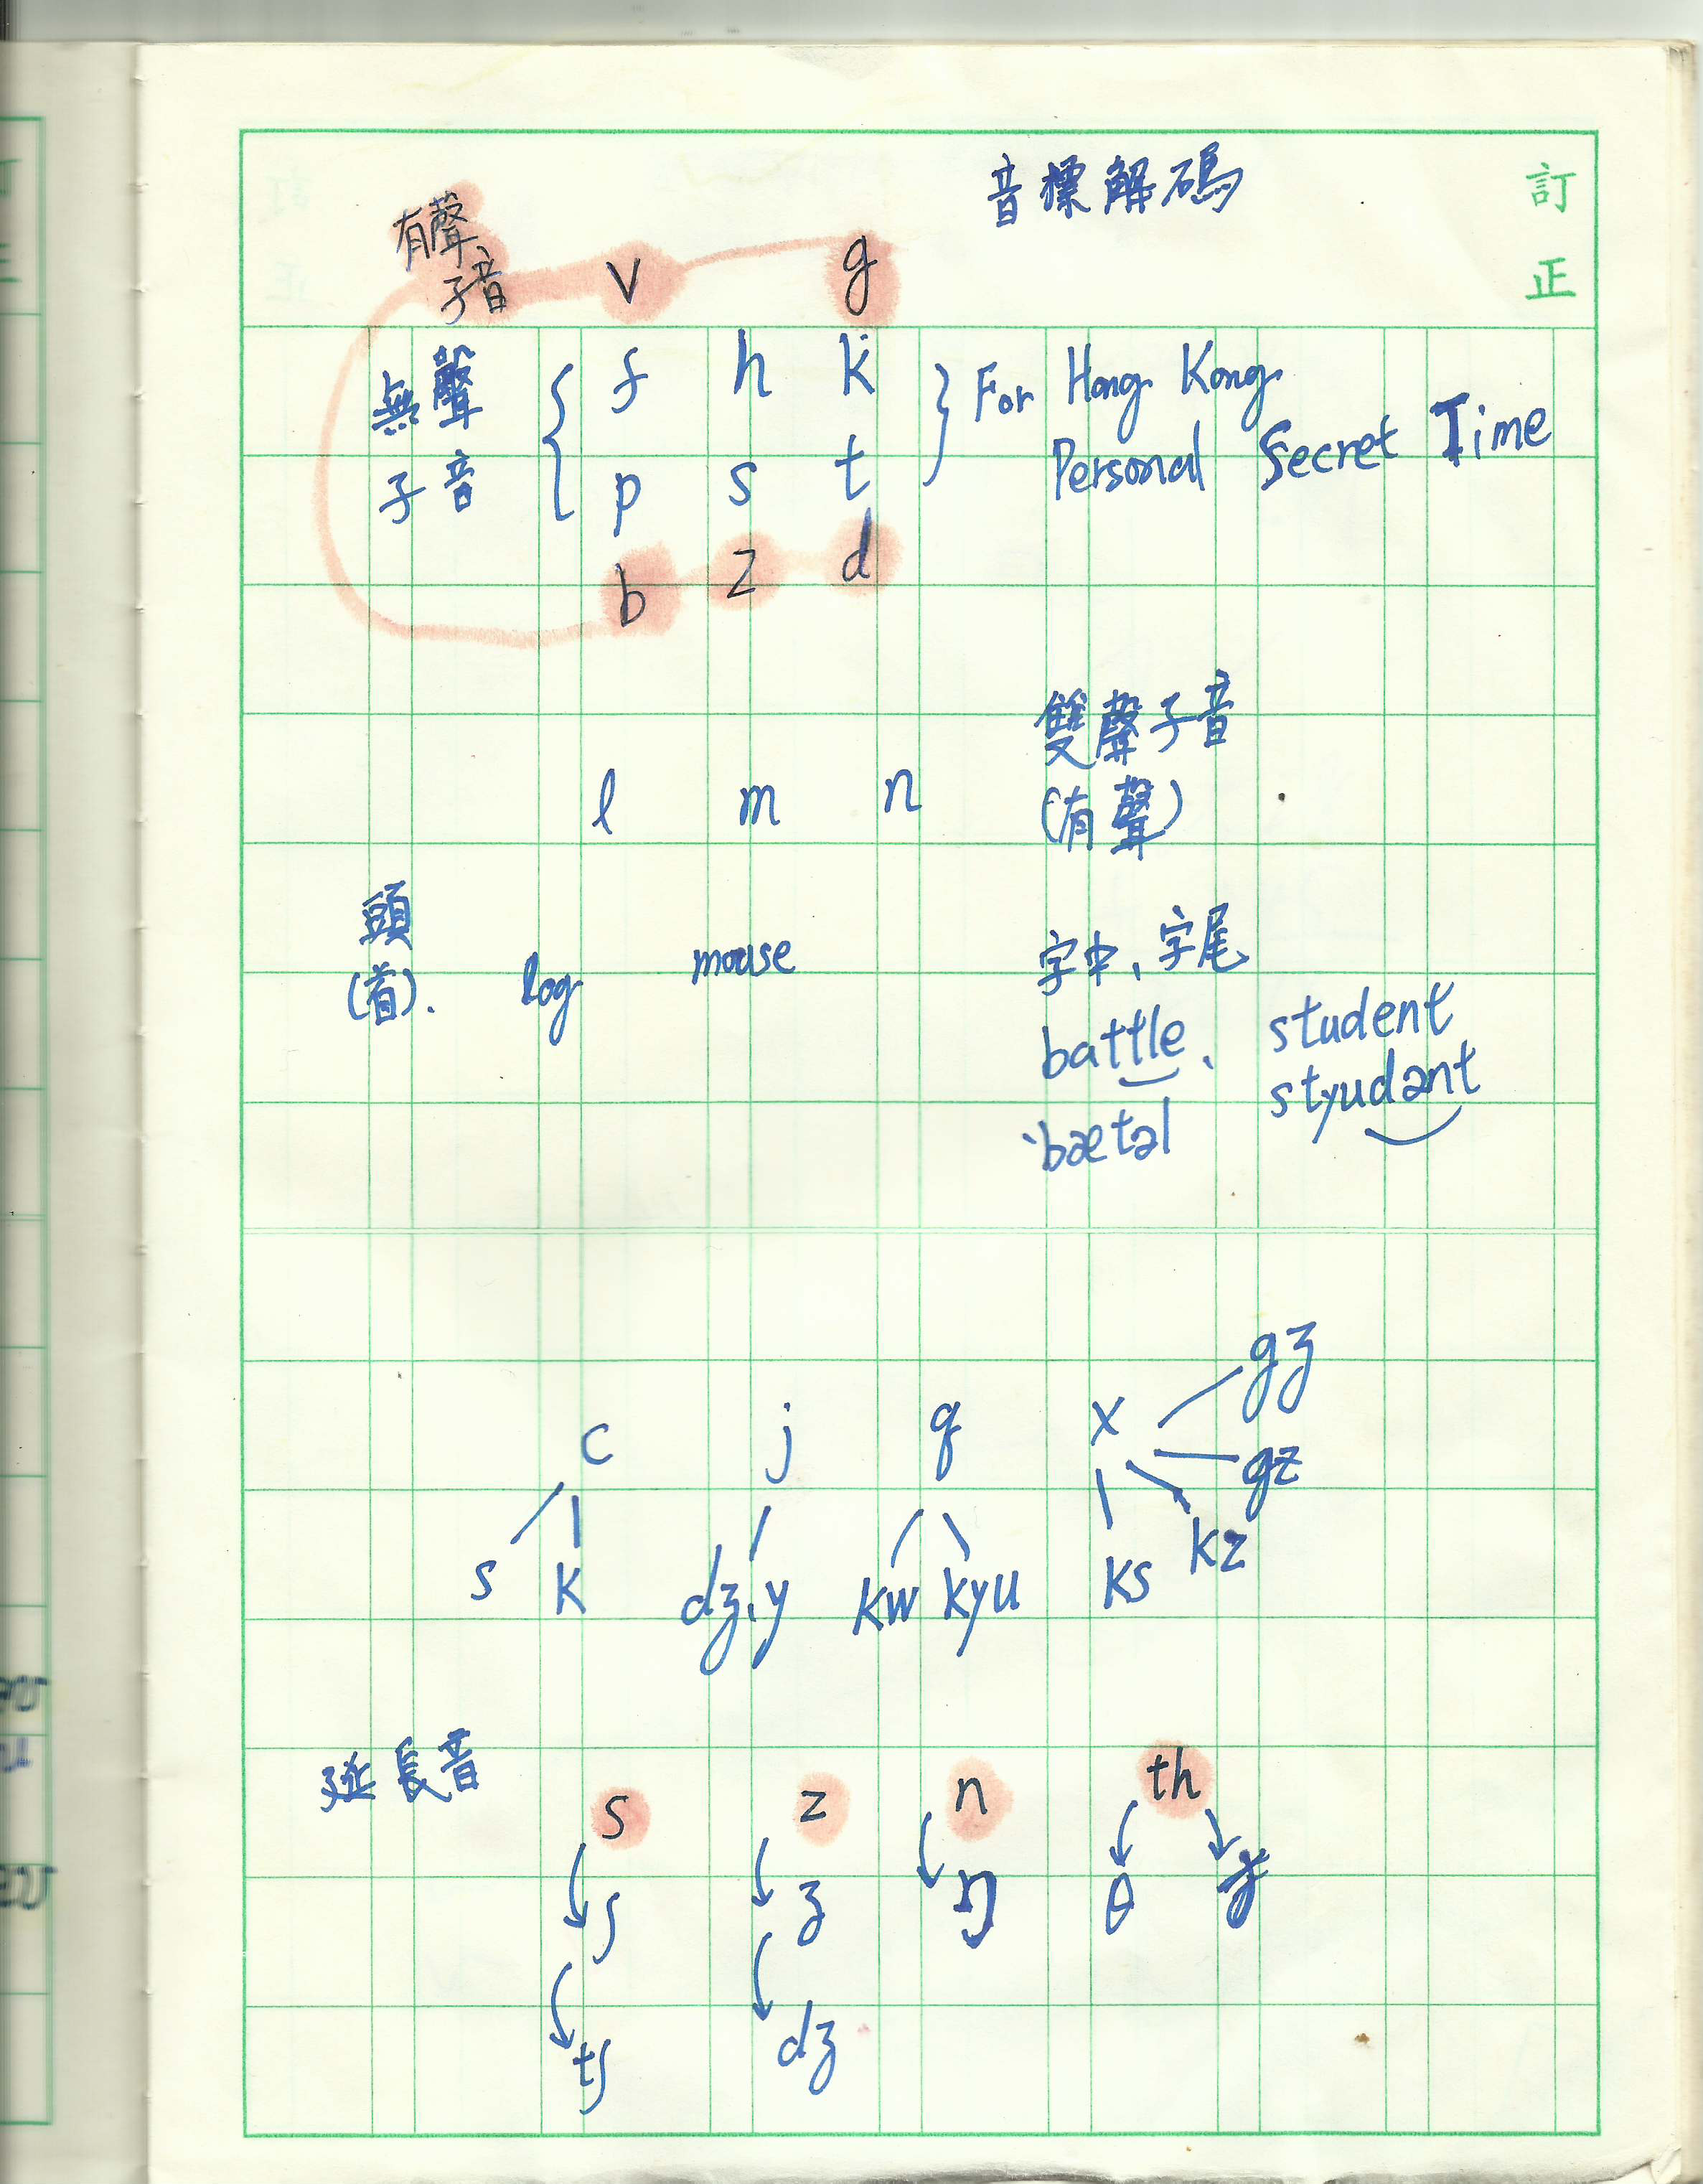 音標解碼
訂正
有聲子音 v g
無聲子音 { f h k } For Hong Kong
p s t Personal Secret Time
b z d
雙聲子音
l m n (有聲)
頭(首). log mouse 字中、字尾
battle、 student
styudənt
`bætəl
gʒ
c j q x gz
s k dʒ、y kw kyu ks kz
延長音 s z n th
ʃ ʒ ŋ θ
tʃ dʒ